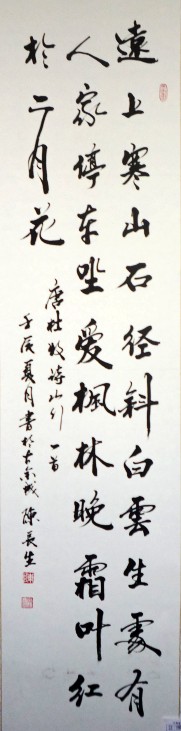 遠上寒山石径斜白雲生處有
人家停车坐爱楓林晚霜叶红
於二月花
唐杜牧诗山行一首
壬辰夏月書於 陳長生